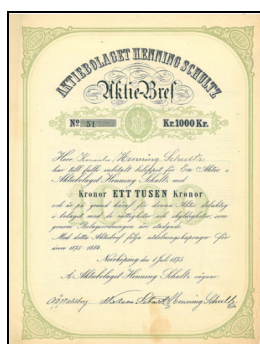 AKTIEBOLAGET HENNING SCHULTZ
Aktie-Bref
Nº 51 Kr. 1000 Kr.
Herr Henning Schultz
har till fullo inbetalt beloppet för En Aktie i
Aktiebolaget Henning Schultz med
Kronor ETT TUSEN Kronor
och är på grund häraf för denna Aktie delaktig
i bolaget med de rättigheter och skyldigheter, som
genom Bolagsordningen äro stadgade.
Med detta Aktiebref följa utdelningskuponger för
åren 1875
Norrköping den 1 Juli 1875
Aktiebolaget Henning Schultz vägnar
Henning Schultz